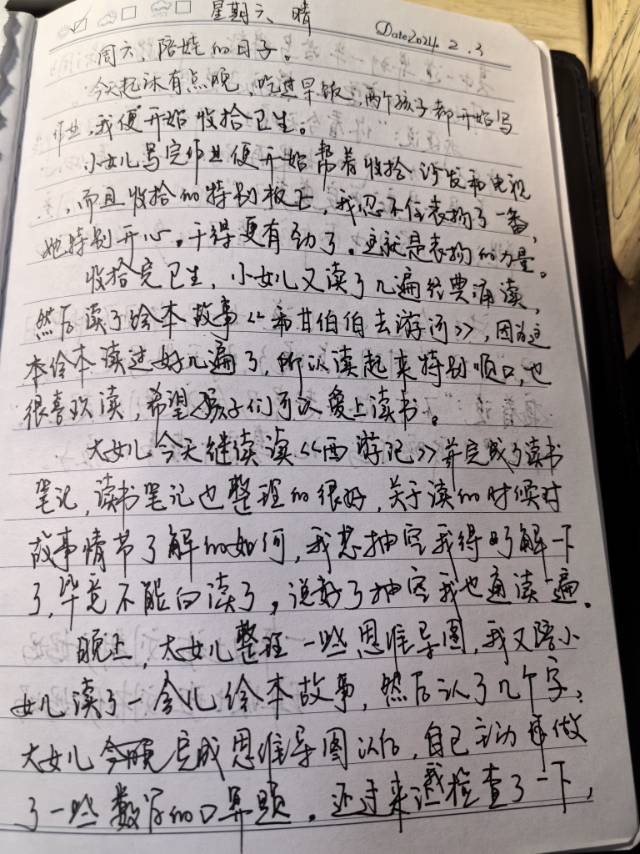 星期六 晴 Date 2024.2.3
周六,陪娃的日子。
今天起床有点晚,吃过早饭,两个孩子都开始写
作业,我便开始收拾卫生。
小女儿写完作业便开始帮着收拾沙发和电视
,而且收拾的特别板正,我忍不住表扬了一番,
她特别开心。干得更有劲了。这就是表扬的力量。
收拾完卫生,小女儿又读了几遍经典诵读,
然后读了绘本故事《希甘伯伯去游河》,因为这
本绘本读过好几遍了,所以读起来特别顺口,也
很喜欢读,希望孩子们可以爱上读书。
大女儿今天继续读《西游记》并完成了读书
笔记,读书笔记也整理的很好,关于读的时候对
故事情节了解的如何,我想抽空我得了解一下
了,毕竟不能白读了。说好了抽空我也通读一遍。
晚上,大女儿整理一些思维导图,我又陪小
女儿读了一会儿绘本故事,然后认了几个字;
大女儿今晚完成思维导图以后,自己主动做
了一些数学的口算题。还过来让我检查了一下,